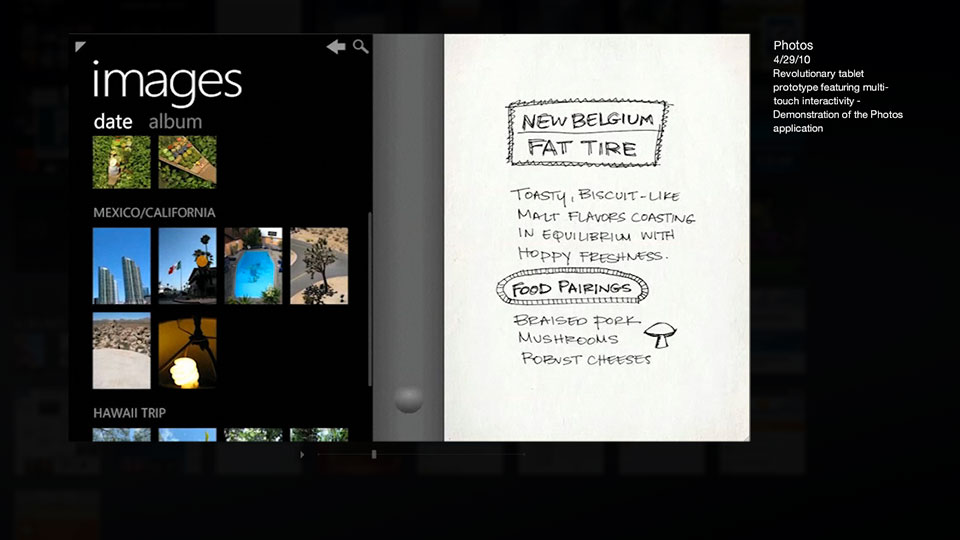 images
date album
MEXICO/CALIFORNIA
HAWAII TRIP
NEW BELGIUM
FAT TIRE
TOASTY, BISCUIT-LIKE
MALT FLAVORS COASTING
IN EQUILIBRIUM WITH
HOPPY FRESHNESS.
FOOD PAIRINGS
BRAISED PORK
MUSHROOMS
ROBUST CHEESES
Photos
4/29/10
Revolutionary tablet
prototype featuring multi-
touch interactivity -
Demonstration of the Photos
application